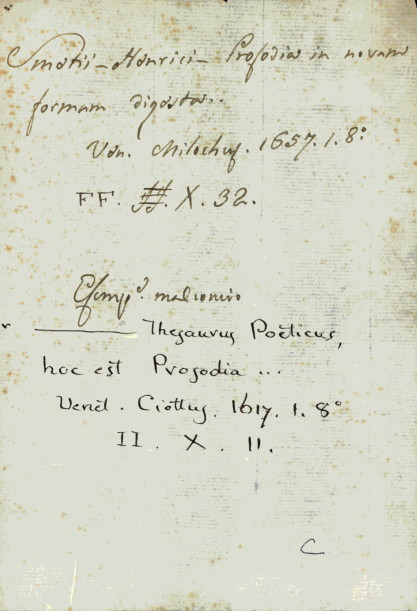 Smetii - Henrici - Prosodia in novam
formam digesta..
Ven. Milochus. 1657. 1. 8°
FF. X. 32.
Esemp.e
——— Thesaurus Poëticus,
hoc est Prosodia ...
Venet. Ciottus. 1617. 1. 8°
II. X. 11.
C